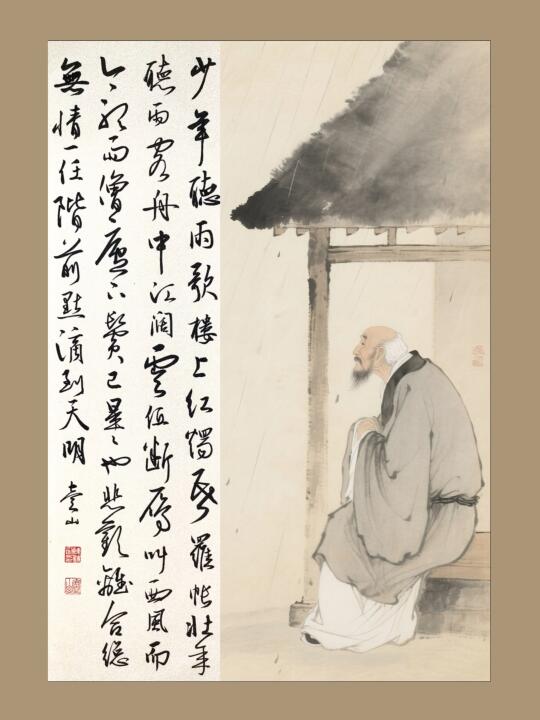 少年聽雨歌楼上红燭昏羅帐壮年
聽雨客舟中江阔雲低断雁叫西風而
今聽雨僧廬下鬓已星〻也悲歡離合總
無情一任階前點滴到天明